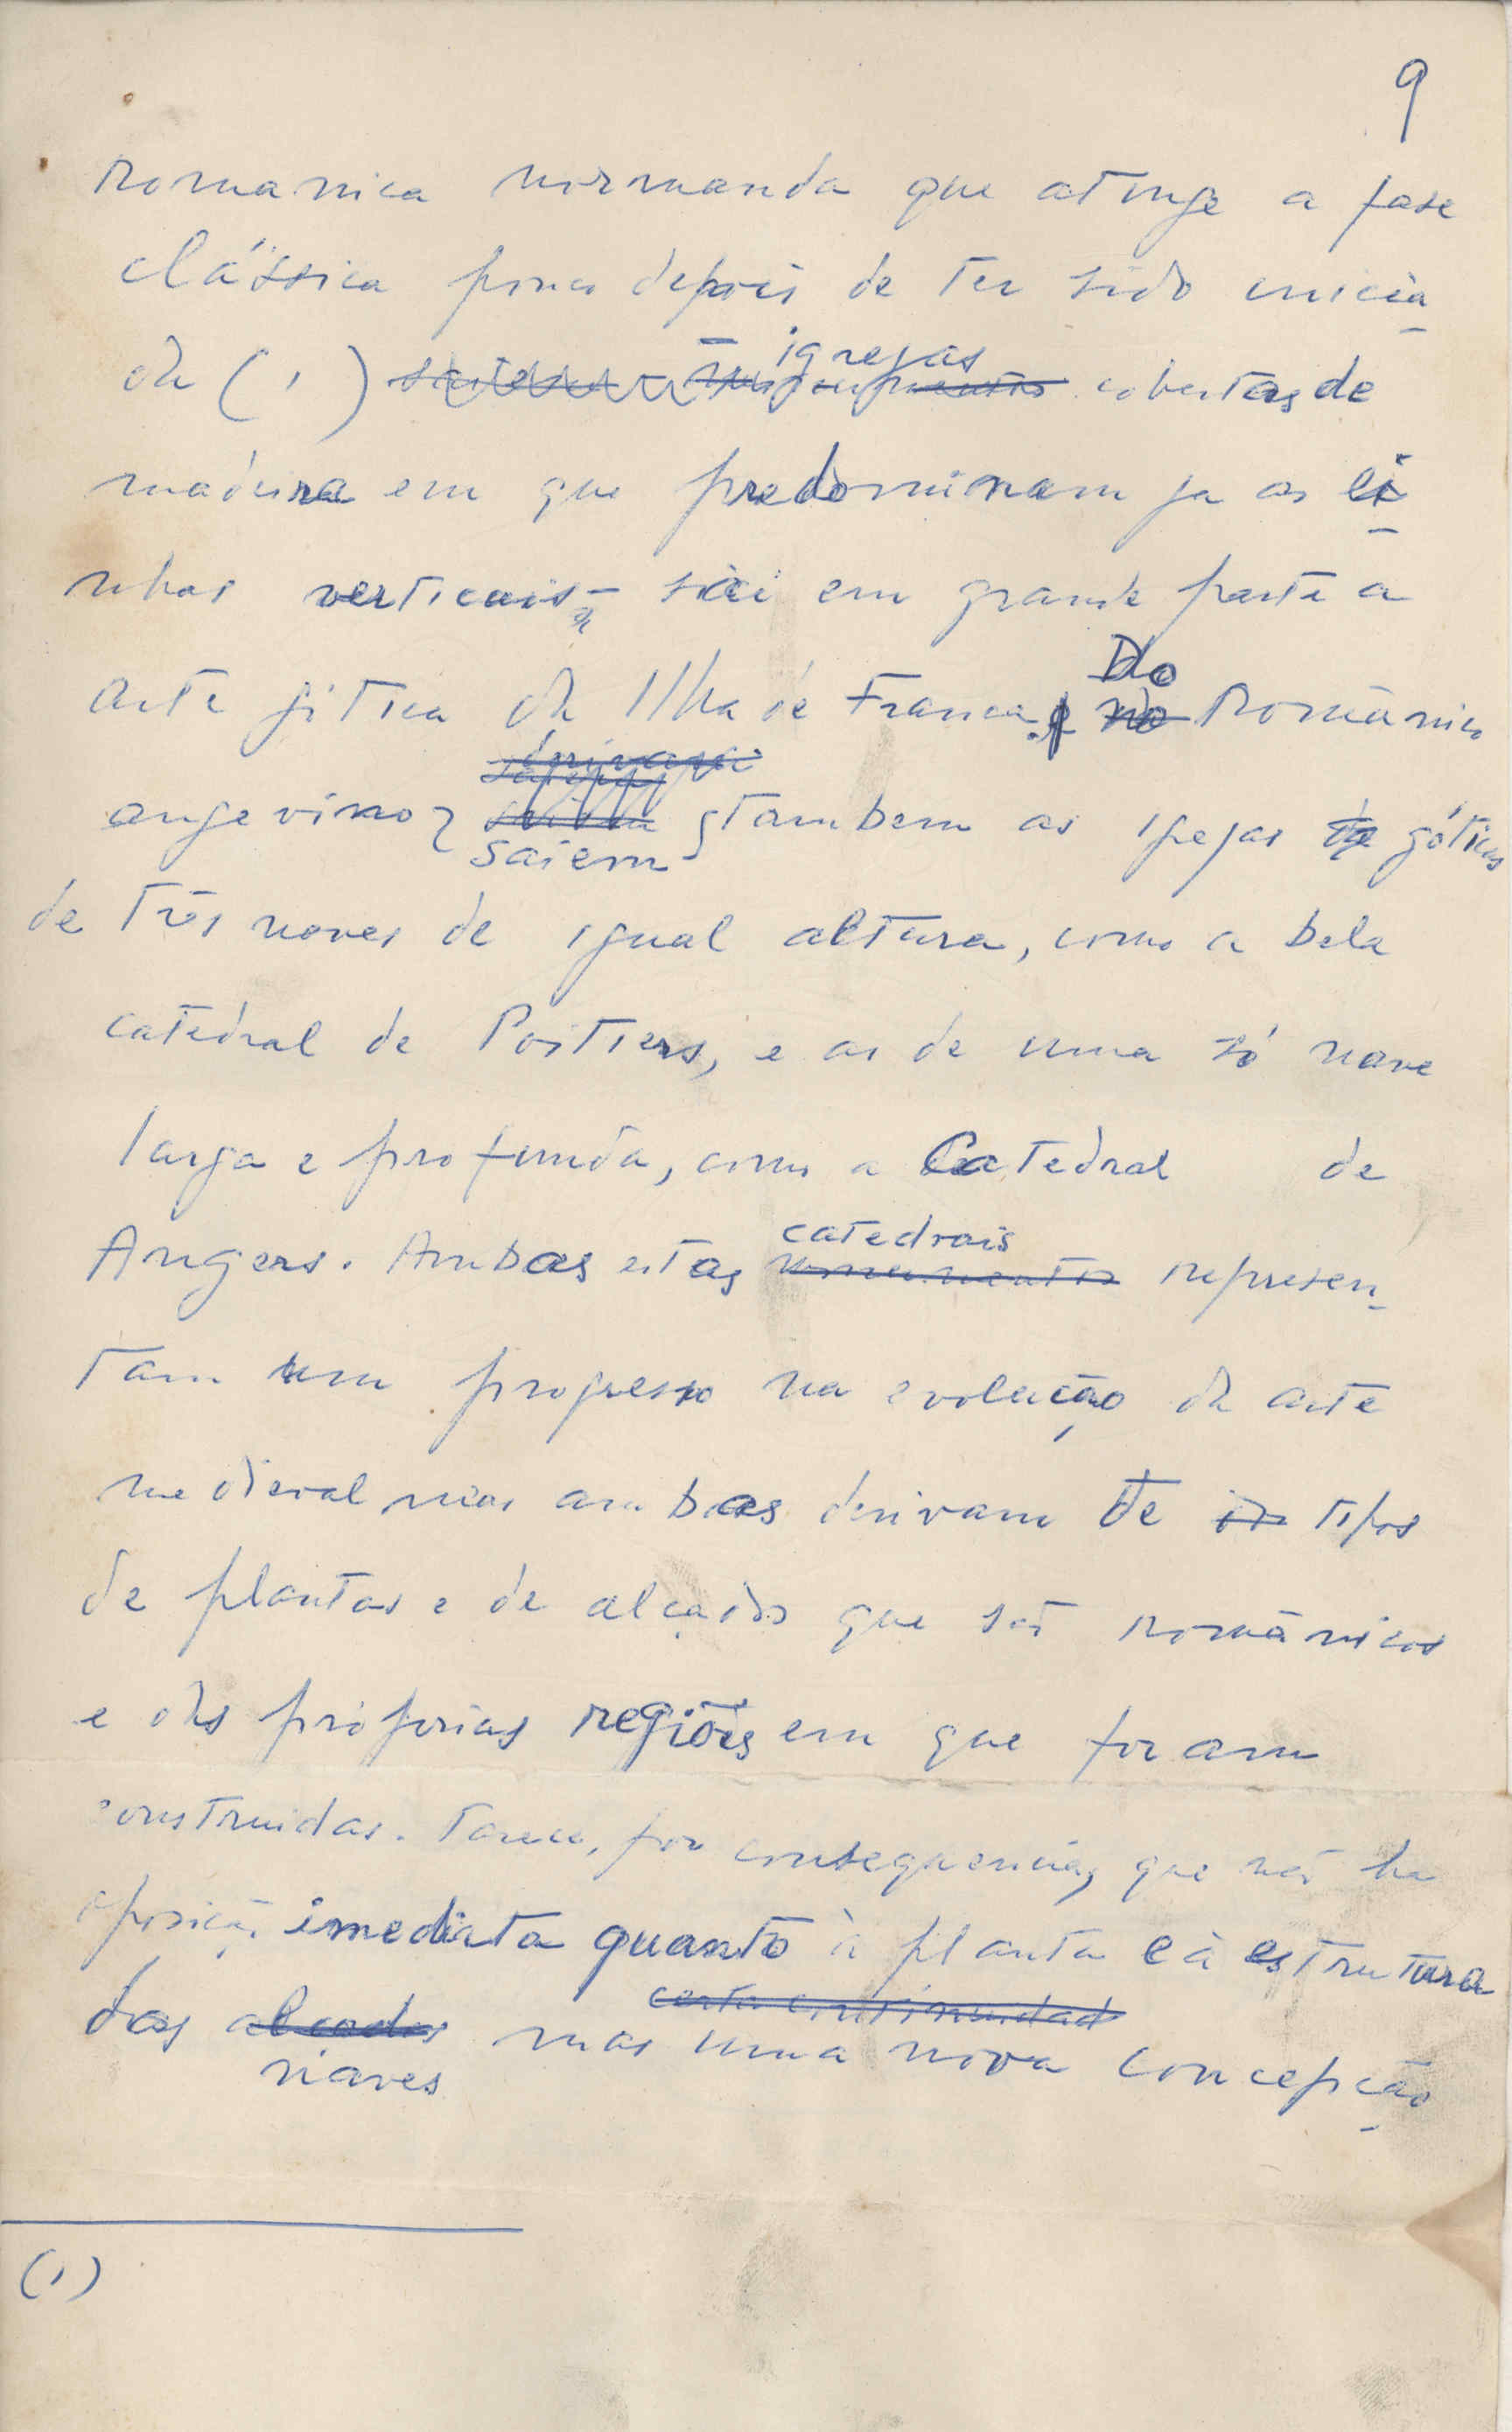 9
romanica normanda que atinge a fase
clássica pouco depois de ter sido inicia
da (1) – igrejas cobertas de
madeira em que predominam ja as li
nhas verticais – sai em grande parte a
arte gótica da Ilha de França. Do no Românico
angevino saiem tambem as igrejas de góticas
de três naves de igual altura, como a bela
catedral de Poitiers, e as de uma só nave
larga e profunda, como a Catedral de
Angers. Ambas estas catedrais monumentos represen
tam um progresso na evolução da arte
medieval mas ambas derivam de tipos
de plantas e de alçados que são românicos
e das próprias regiões em que foram
construidas. Parece, por consequencia, que não ha
oposição imediata quanto à planta e à estrutura
certa continuidad
das alçados mas uma nova concepção
naves
(1)